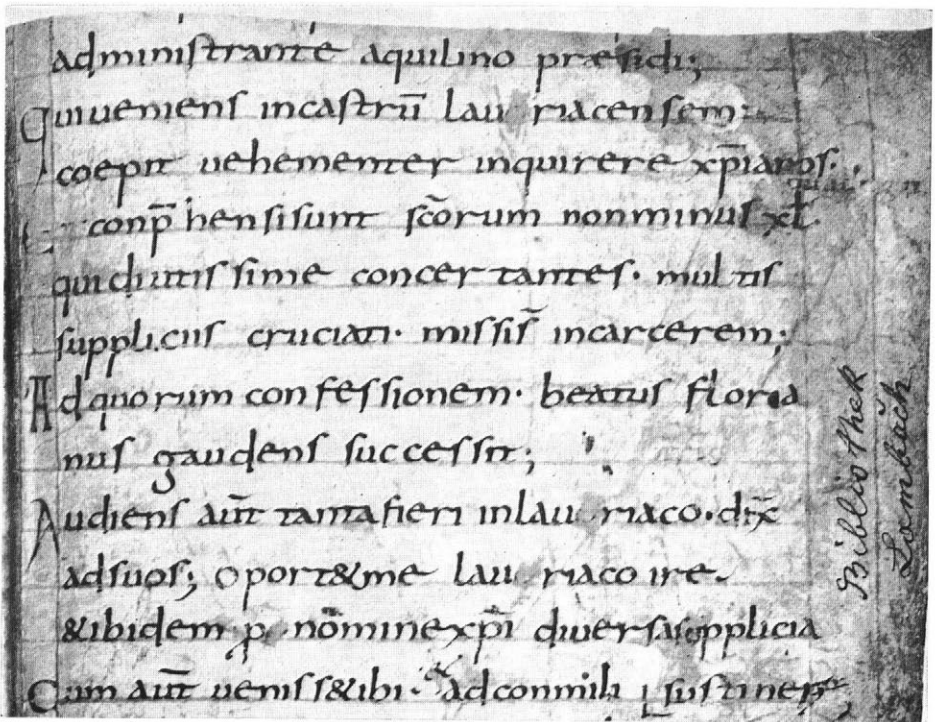 administrante aquilino præsidi;
Qui ueniens in castrū lauriacensem:
coepit uehementer inquirere xp̄ianos·
conp̄hensi sunt sc̄orum non minus xl
qui diutissime concertantes· multis
suppliciis cruciati· missi s̄ in carcerem;
Ad quorum confessionem· beatus floria
nus gaudens successit;
Audiens aūt tanta fieri in lauriaco· dix̄
ad suos; oport&me lauriaco ire·
&ibidem ꝓ nōmine xp̄i diuersa supplicia
Cum aūt ueniss&ibi· ad conmili sustiner
Bibliothek
Lambach